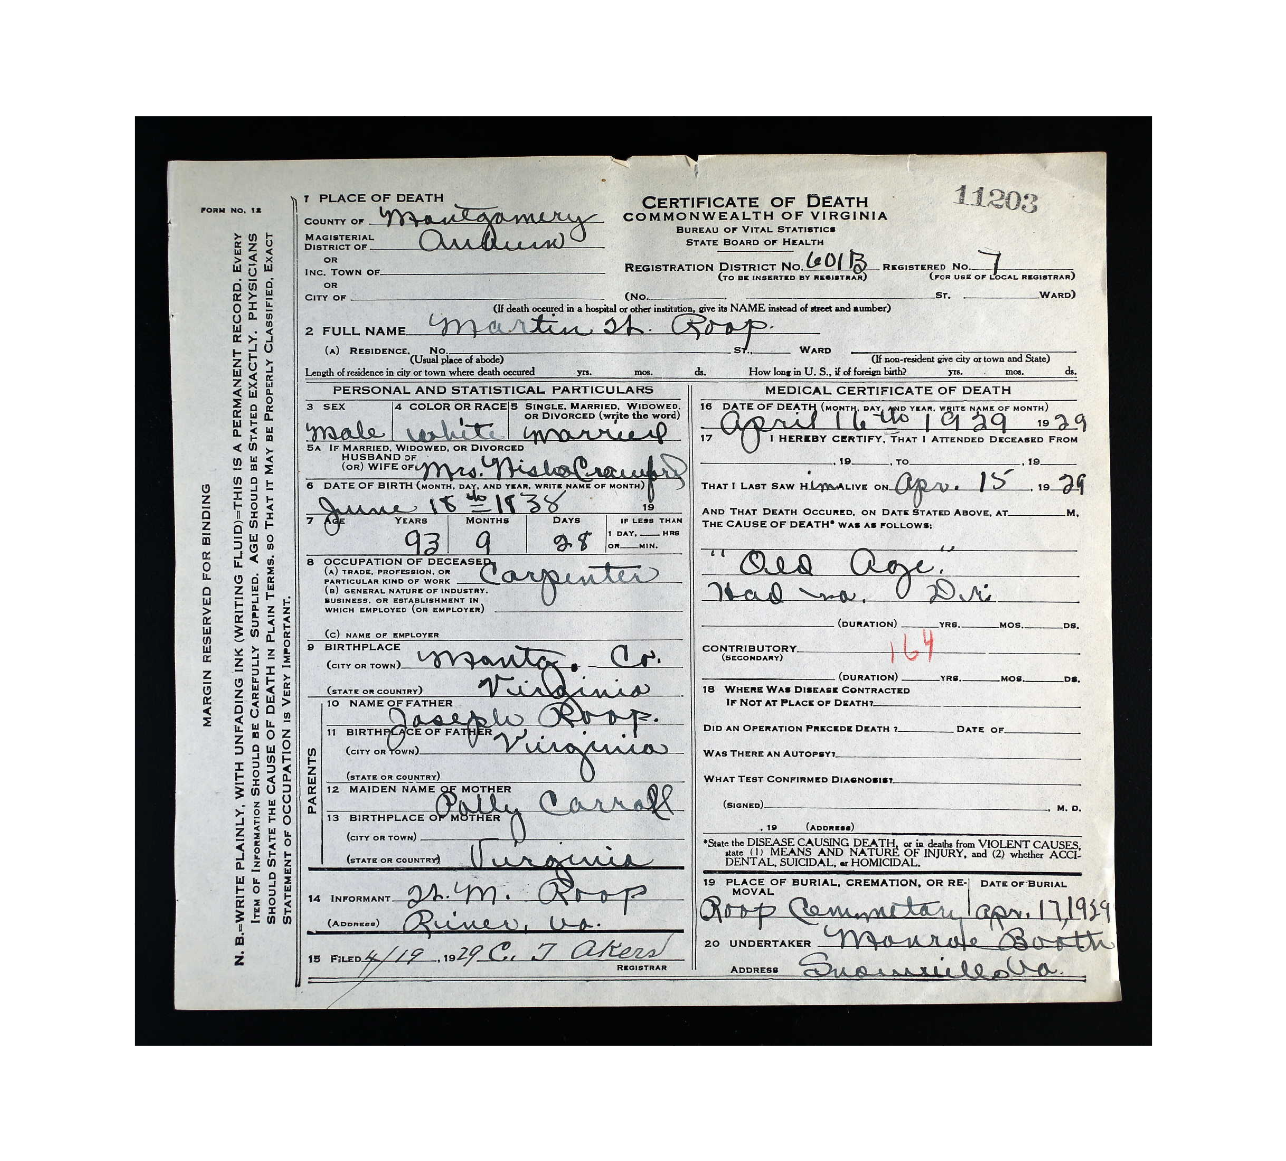 FORM NO. 12
MARGIN RESERVED FOR BINDING
N. B.—WRITE PLAINLY, WITH UNFADING INK (WRITING FLUID)—THIS IS A PERMANENT RECORD. EVERY
ITEM OF INFORMATION SHOULD BE CAREFULLY SUPPLIED. AGE SHOULD BE STATED EXACTLY. PHYSICIANS
SHOULD STATE THE CAUSE OF DEATH IN PLAIN TERMS, SO THAT IT MAY BE PROPERLY CLASSIFIED. EXACT
STATEMENT OF OCCUPATION IS VERY IMPORTANT.
11203
CERTIFICATE OF DEATH
COMMONWEALTH OF VIRGINIA
BUREAU OF VITAL STATISTICS
STATE BOARD OF HEALTH
1 PLACE OF DEATH
COUNTY OF Montgomery
MAGISTERIAL
DISTRICT OF Auburn
OR
INC. TOWN OF
OR
CITY OF
REGISTRATION DISTRICT NO. 601B REGISTERED NO. 7
(TO BE INSERTED BY REGISTRAR) (FOR USE OF LOCAL REGISTRAR)
(NO. ST. WARD)
(If death occured in a hospital or other institution, give its NAME instead of street and number)
2 FULL NAME Martin H. Roop.
(A) RESIDENCE, NO. ST., WARD
(Usual place of abode) (If non-resident give city or town and State)
Length of residence in city or town where death occured yrs. mos. ds. How long in U. S., if of foreign birth? yrs. mos. ds.
PERSONAL AND STATISTICAL PARTICULARS
3 SEX 4 COLOR OR RACE 5 SINGLE, MARRIED, WIDOWED,
OR DIVORCED (write the word)
Male white Married
5A IF MARRIED, WIDOWED, OR DIVORCED
HUSBAND OF
(OR) WIFE OF Mrs. Crawford
6 DATE OF BIRTH (MONTH, DAY, AND YEAR, WRITE NAME OF MONTH)
June 18th 1838 19
7 AGE YEARS MONTHS DAYS IF LESS THAN
1 DAY, HRS
OR MIN.
93 9 28
8 OCCUPATION OF DECEASED
(A) TRADE, PROFESSION, OR
PARTICULAR KIND OF WORK Carpenter
(B) GENERAL NATURE OF INDUSTRY,
BUSINESS, OR ESTABLISHMENT IN
WHICH EMPLOYED (OR EMPLOYER)
(C) NAME OF EMPLOYER
9 BIRTHPLACE
(CITY OR TOWN) Montg. Co.
(STATE OR COUNTRY) Virginia
PARENTS
10 NAME OF FATHER
Joseph Roop.
11 BIRTHPLACE OF FATHER
(CITY OR TOWN) Virginia
(STATE OR COUNTRY)
12 MAIDEN NAME OF MOTHER
Polly Carroll
13 BIRTHPLACE OF MOTHER
(CITY OR TOWN)
(STATE OR COUNTRY) Virginia
14 INFORMANT H. M. Roop
(ADDRESS) Riner, Va.
15 FILED 4/19, 1929 C. T Akers
REGISTRAR
MEDICAL CERTIFICATE OF DEATH
16 DATE OF DEATH (MONTH, DAY, AND YEAR, WRITE NAME OF MONTH)
April 16th 1929 1929
17 I HEREBY CERTIFY, THAT I ATTENDED DECEASED FROM
, 19 , TO , 19
THAT I LAST SAW Him ALIVE ON Apr. 15, 1929
AND THAT DEATH OCCURED, ON DATE STATED ABOVE, AT M,
THE CAUSE OF DEATH* WAS AS FOLLOWS:
"Old Age."
Had no. Dr.
(DURATION) YRS. MOS. DS.
CONTRIBUTORY 164
(SECONDARY)
(DURATION) YRS. MOS. DS.
18 WHERE WAS DISEASE CONTRACTED
IF NOT AT PLACE OF DEATH?
DID AN OPERATION PRECEDE DEATH? DATE OF
WAS THERE AN AUTOPSY?
WHAT TEST CONFIRMED DIAGNOSIS?
(SIGNED) M. D.
, 19 (ADDRESS)
*State the DISEASE CAUSING DEATH, or in deaths from VIOLENT CAUSES,
state (1) MEANS AND NATURE OF INJURY, and (2) whether ACCI-
DENTAL, SUICIDAL, or HOMICIDAL.
19 PLACE OF BURIAL, CREMATION, OR RE- DATE OF BURIAL
MOVAL
Roop Cemmetary Apr. 17, 1929
20 UNDERTAKER Monroe Booth
ADDRESS Snowville Va.